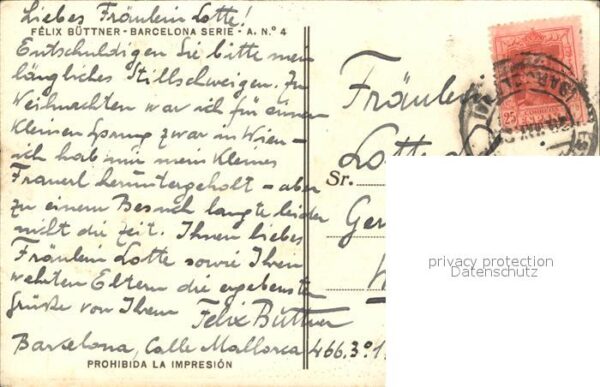 Liebes Fräulein Lotte!
FÉLIX BÜTTNER - BARCELONA SERIE - A. N.º 4
Entschuldigen Sie bitte mein
längliches Stillschweigen. Zu
Weihnachten war ich für einen
kleinen Sprung zwar in Wien -
ich hab mir mein kleines
Frauerl heruntergeholt - aber
zu einem Besuch langte leider
nicht die Zeit. Ihnen liebes
Fräulein Lotte sowie Ihren
werten Eltern die ergebensten
Grüße von Ihrem
Felix Büttner
Barcelona, Calle Mallorca 466. 3º 1
PROHIBIDA LA IMPRESIÓN
Fräulein
Lotte
Sr.
25
CORREOS
privacy protection
Datenschutz